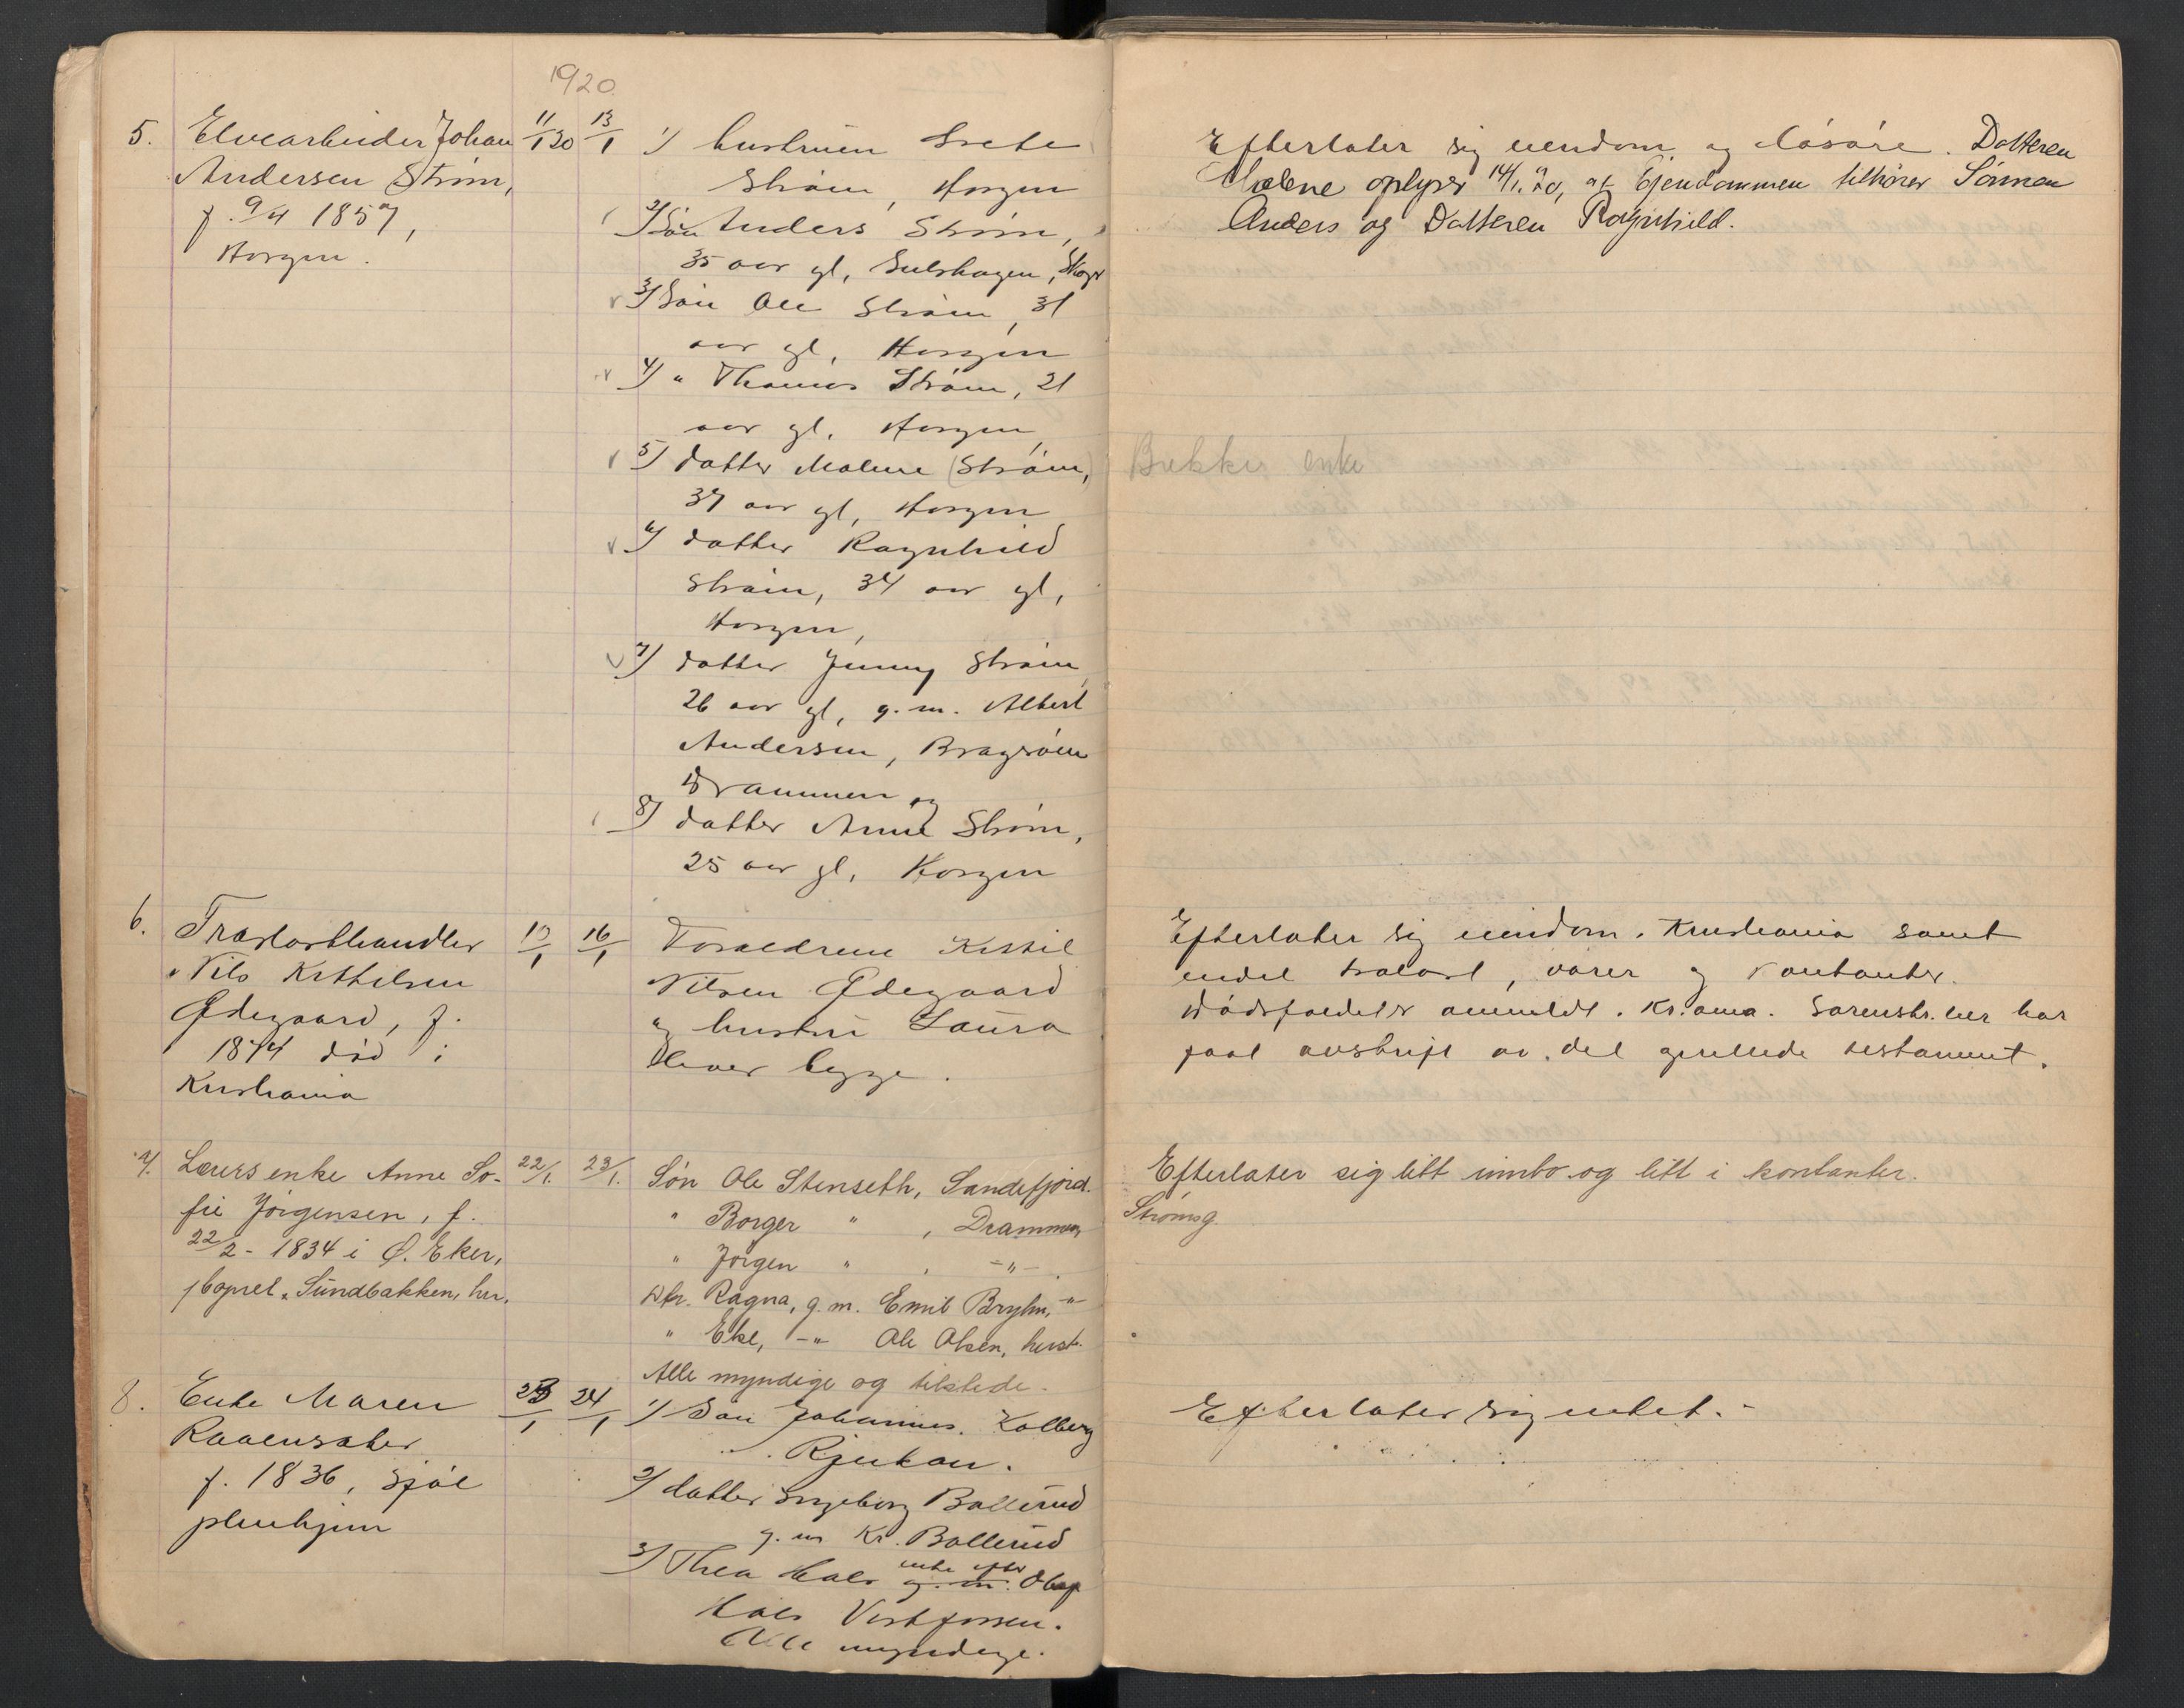 1920
5. Elvearbeider Johan 11/1 20 13/1
Andersen Strøm,
f. 9/4 1857,
Horgen.
1) hustruen Grete
Strøm, Horgen
2) Søn Anders Strøm,
35 aar gl,
3) Søn Ole Strøm, 31
aar gl, Horgen
4) " Thomas Strøm, 21
aar gl. Horgen
5) datter Malene (Strøm,)
37 aar gl, Horgen
6) datter Ragnhild
Strøm, 34 aar gl,
Horgen,
7) datter Jenny Strøm
26 aar gl, g.m. Albert
Andersen, Bragerøen
Drammen og
8) datter Anne Strøm,
25 aar gl, Horgen
6. Trælasthandler 13/1 16/1
Nils Kittilsen
Ødegaard, f.
1874 død i
Kristiania
Foraeldrene Kittil
Nilsen Ødegaard
og hustru Laura
lever begge.
7. Lærers enke Anne So- 22/1. 23/1.
fie Jørgensen, f.
22/2 - 1834 i Ø. Eker,
Sundbakken, her.
Søn Ole Stenseth, Sandefjord.
" Borger " , Drammen
" Jørgen " , -"- .
Dtr. Ragna, g.m. Emil Bryhn, -"-
" -"- Ole Olsen, herst.
Alle myndige og tilstede.
8. Enke Maren 23/1 24/1
Raaensater
f. 1836,
pleiehjem
1) Søn Johannes Kolberg
Rjukan.
2) datter Ingeborg Bollerud
g.m Kr. Bollerud
3) Thea Hals enke efter g.m. Olaf
Hals Vestfossen.
Alle myndige.
Efterlater sig eiendom og løsøre. Datteren
Malene oplyser 14/1. 20, at Ejendommen tilhører Sønnen
Anders og Datteren Ragnhild.
Bekker enke
Efterlater sig eiendom i Kristiania samt
endel trælast, varer og kontanter.
Dødsfaldet er anmeldt i Kr.ania. Sorenskr. her har
faat avskrift av det gjensidige testament.
Efterlater sig litt innbo og litt i kontanter.
Strømsg.
Efterlater sig intet.-